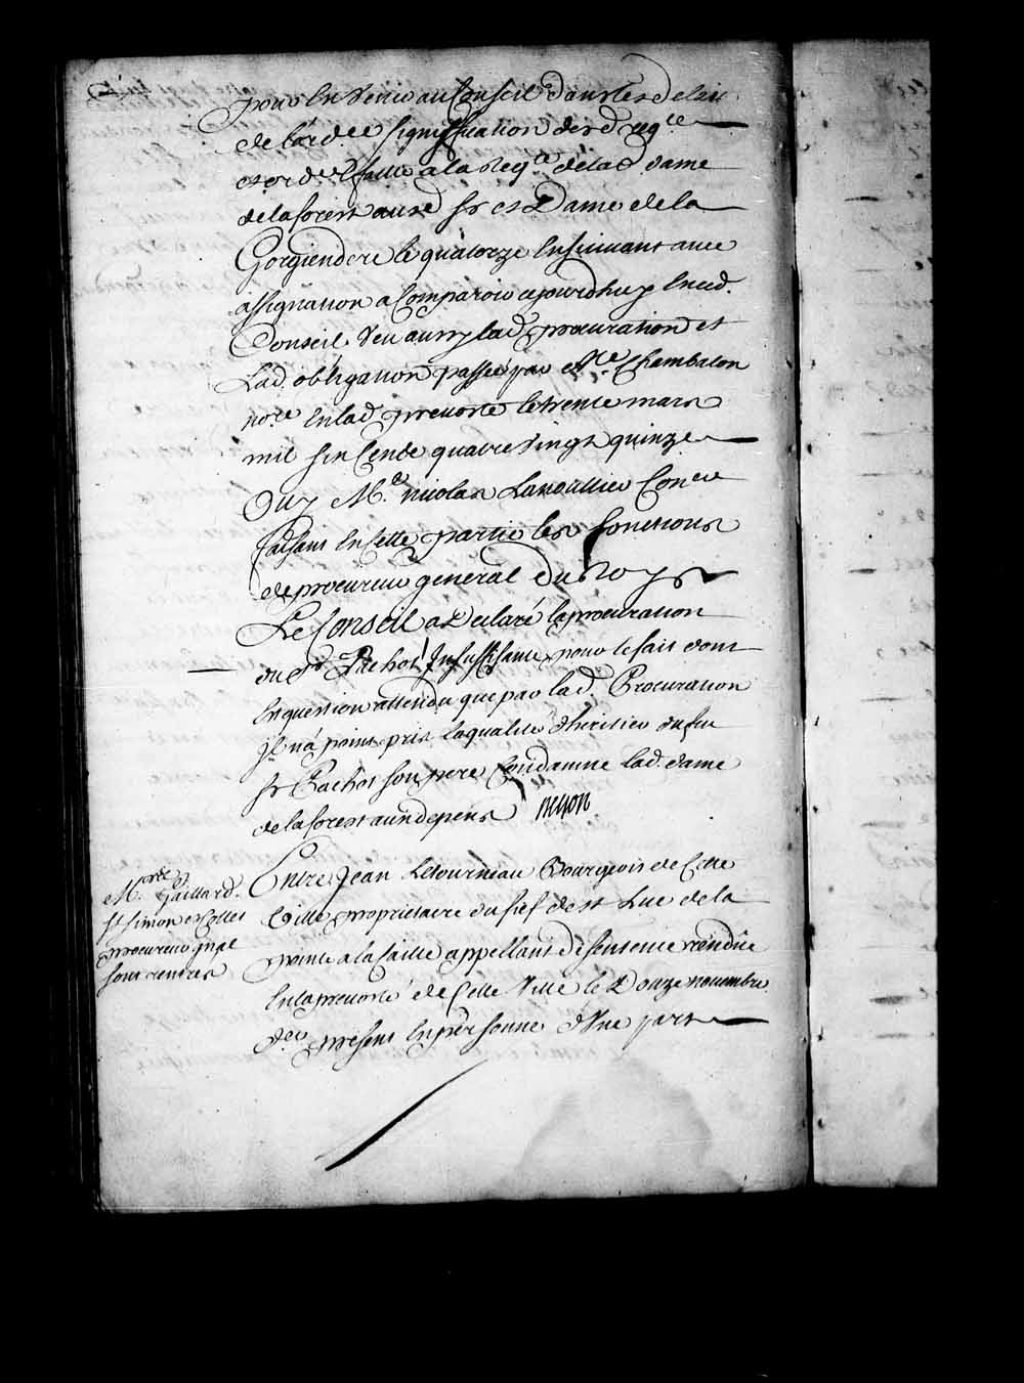 pour En Venir au Conseil dans les delais
de l'ord.ce signiffication desd. reqte
et ord.ce faitte a la Reqte de lad dame
de la forest ausd. sr et Dame de la
Gorgiendere le quatorze Ensuivant avec
assignation a Comparoir cejourdhuy En ced.
Conseil Veu aussy lad procuration et
Lad. obligation passée par Me Chambalon
nore En lad. prevosté le trente mars
mil six Cents quatre Vingt quinze
Ouy Me nicolas Lanoullier Coner
faisant En Cette partie les fonctions
de procureur general du Roy
Le Conseil a Declaré la procuration
du Sr Pachot Insuffisante pour le fait dont
Est question attendu que par lad. Procuration
Il n'a point pris la qualité d'heritier du feu
sr Pachot son pere Condamne lad. dame
de la forest aux depens
Mrs Gaillard
St simon et Collet
procureur gnal
sont rentrés
Entre Jean Letourneau Bourgeois de Cette
Ville proprietaire du fief de St Luc de la
pointe a la Caille appellant de sentence rendüe
En la prevosté de Cette Ville le Douze novembre
d.er present En personne d'Une part